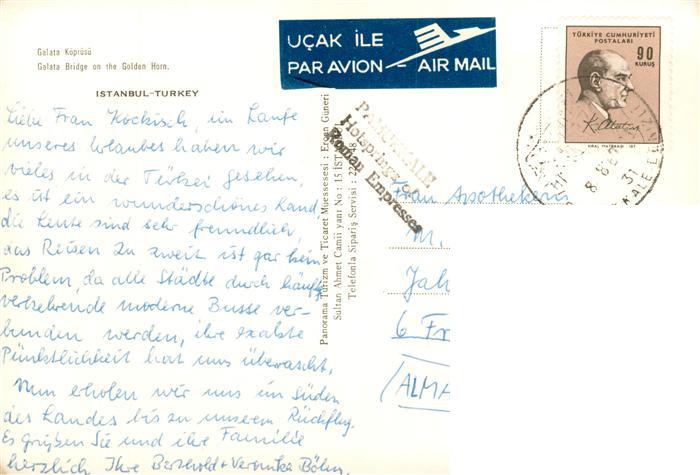 Galata Köprüsü
Galata Bridge on the Golden Horn.
ISTANBUL-TURKEY
UÇAK İLE
PAR AVION - AIR MAIL
TÜRKİYE CUMHURİYETİ
POSTALARI
90
KURUŞ
K. Atatürk
PAMUKKALE
Hotsprings of
Roman Empresses
Liebe Frau Kockisch, im Laufe
unseres Urlaubes haben wir
vieles in der Türkei gesehen,
es ist ein wunderschönes Land,
die Leute sind sehr freundlich,
das Reisen zu zweit ist gar kein
Problem, da alle Städte durch häufig
verkehrende moderne Busse ver-
bunden werden, ihre exakte
Pünktlichkeit hat uns überrascht.
Nun erholen wir uns im Süden
des Landes bis zu unserem Rückflug.
Es grüßen Sie und ihre Familie
herzlich Ihre Berthold + Veronika Böhm.
Panorama Turizm ve Ticaret Müessesesi : Ergan Güneri
Sultan Ahmet Camii yanı No : 15 İST
Telefonla Sipariş Servisi : 22
Frau Apothekerin
M.
Jah
6 Fr
(ALMA